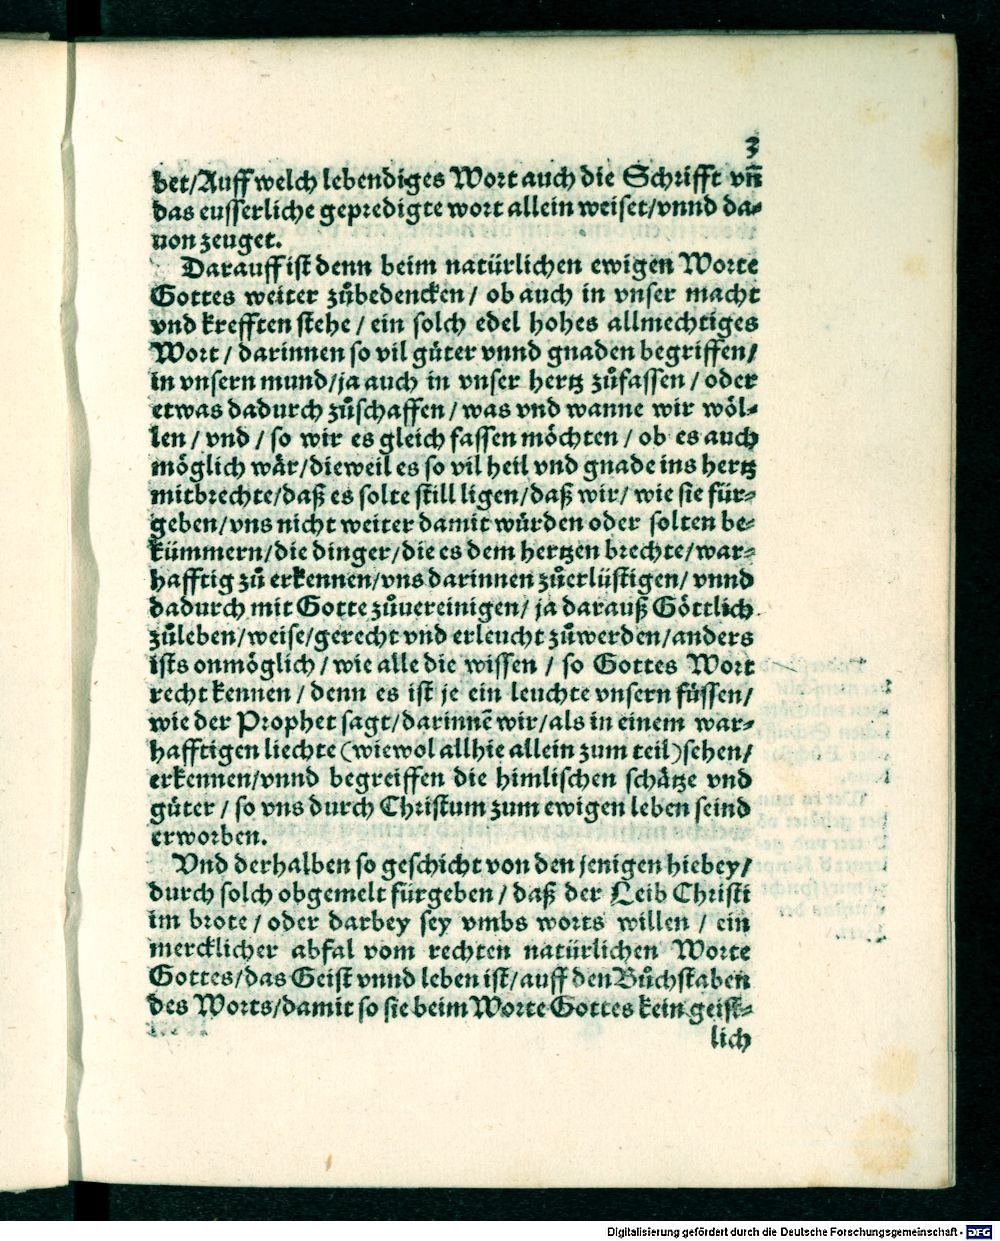 3
bet/Auff welch lebendiges Wort auch die Schrifft vñ
das eusserliche gepredigte wort allein weiset/vnnd da-
uon zeuget.
Darauff ist denn beim natürlichen ewigen Worte
Gottes weiter zůbedencken / ob auch in vnser macht
vnd krefften stehe / ein solch edel hohes allmechtiges
Wort / darinnen so vil güter vnnd gnaden begriffen/
in vnsern mund/ja auch in vnser hertz zůfassen / oder
etwas dadurch zůschaffen / was vnd wanne wir wöl-
len / vnd / so wir es gleich fassen möchten / ob es auch
möglich wär/dieweil es so vil heil vnd gnade ins hertz
mitbrechte/daß es solte still ligen/daß wir/ wie sie für-
geben/vns nicht weiter damit würden oder solten be-
kümmern/die dinger/die es dem hertzen brechte/war-
hafftig zů erkennen/vns darinnen zůerlüstigen/ vnnd
dadurch mit Gotte zůuereinigen/ ja darauß Göttlich
zůleben/weise/gerecht vnd erleucht zůwerden/anders
ists onmöglich / wie alle die wissen / so Gottes Wort
recht kennen / denn es ist je ein leuchte vnsern füssen/
wie der Prophet sagt/darinnē wir/als in einem war-
hafftigen liechte (wiewol allhie allein zum teil)sehen/
erkennen/vnnd begreiffen die himlischen schätze vnd
güter / so vns durch Christum zum ewigen leben seind
erworben.
Vnd derhalben so geschicht von den jenigen hiebey/
durch solch obgemelt fürgeben / daß der Leib Christi
im brote / oder darbey sey vmbs worts willen / ein
mercklicher abfal vom rechten natürlichen Worte
Gottes/das Geist vnnd leben ist/auff den Bůchstaben
des Worts/damit so sie beim Worte Gottes kein geist-
lich
Digitalisierung gefördert durch die Deutsche Forschungsgemeinschaft - DFG